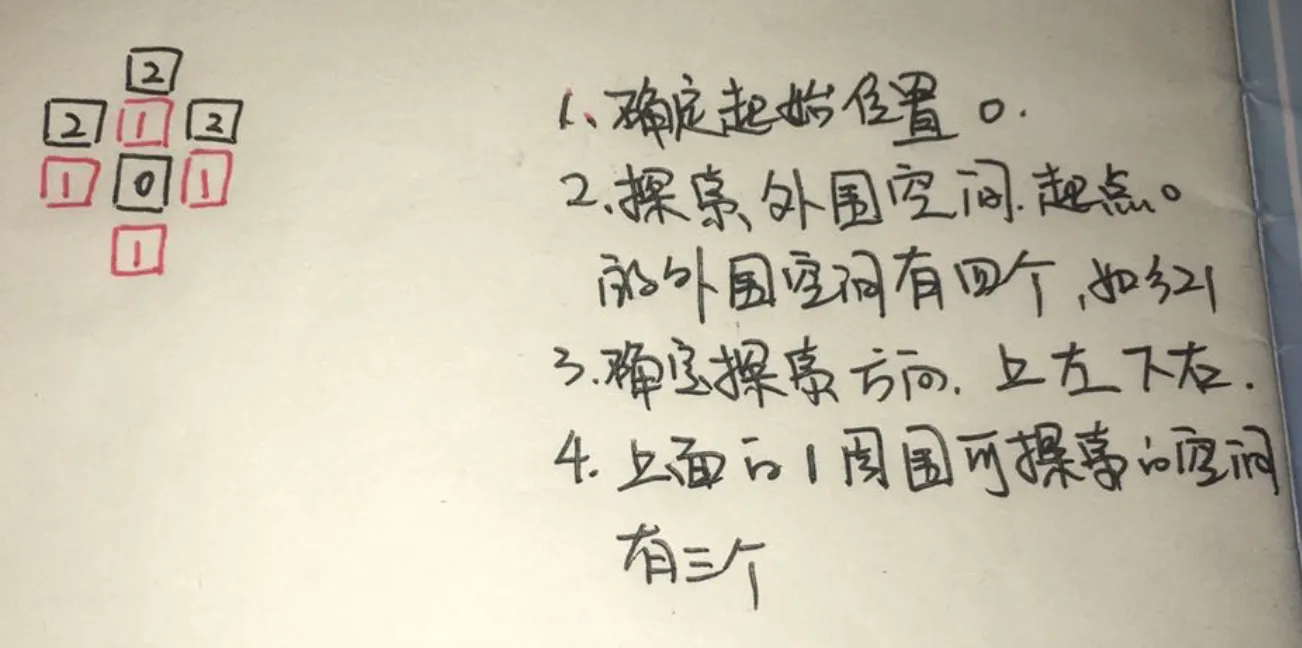 2
2 1 2
1 0 1
1
1、确定起始位置 0.
2、探索外围空间.起点0
的外围空间有四个,如红1
3.确定探索方向.上左下右.
4.上面的1周围可探索的空间
有三个